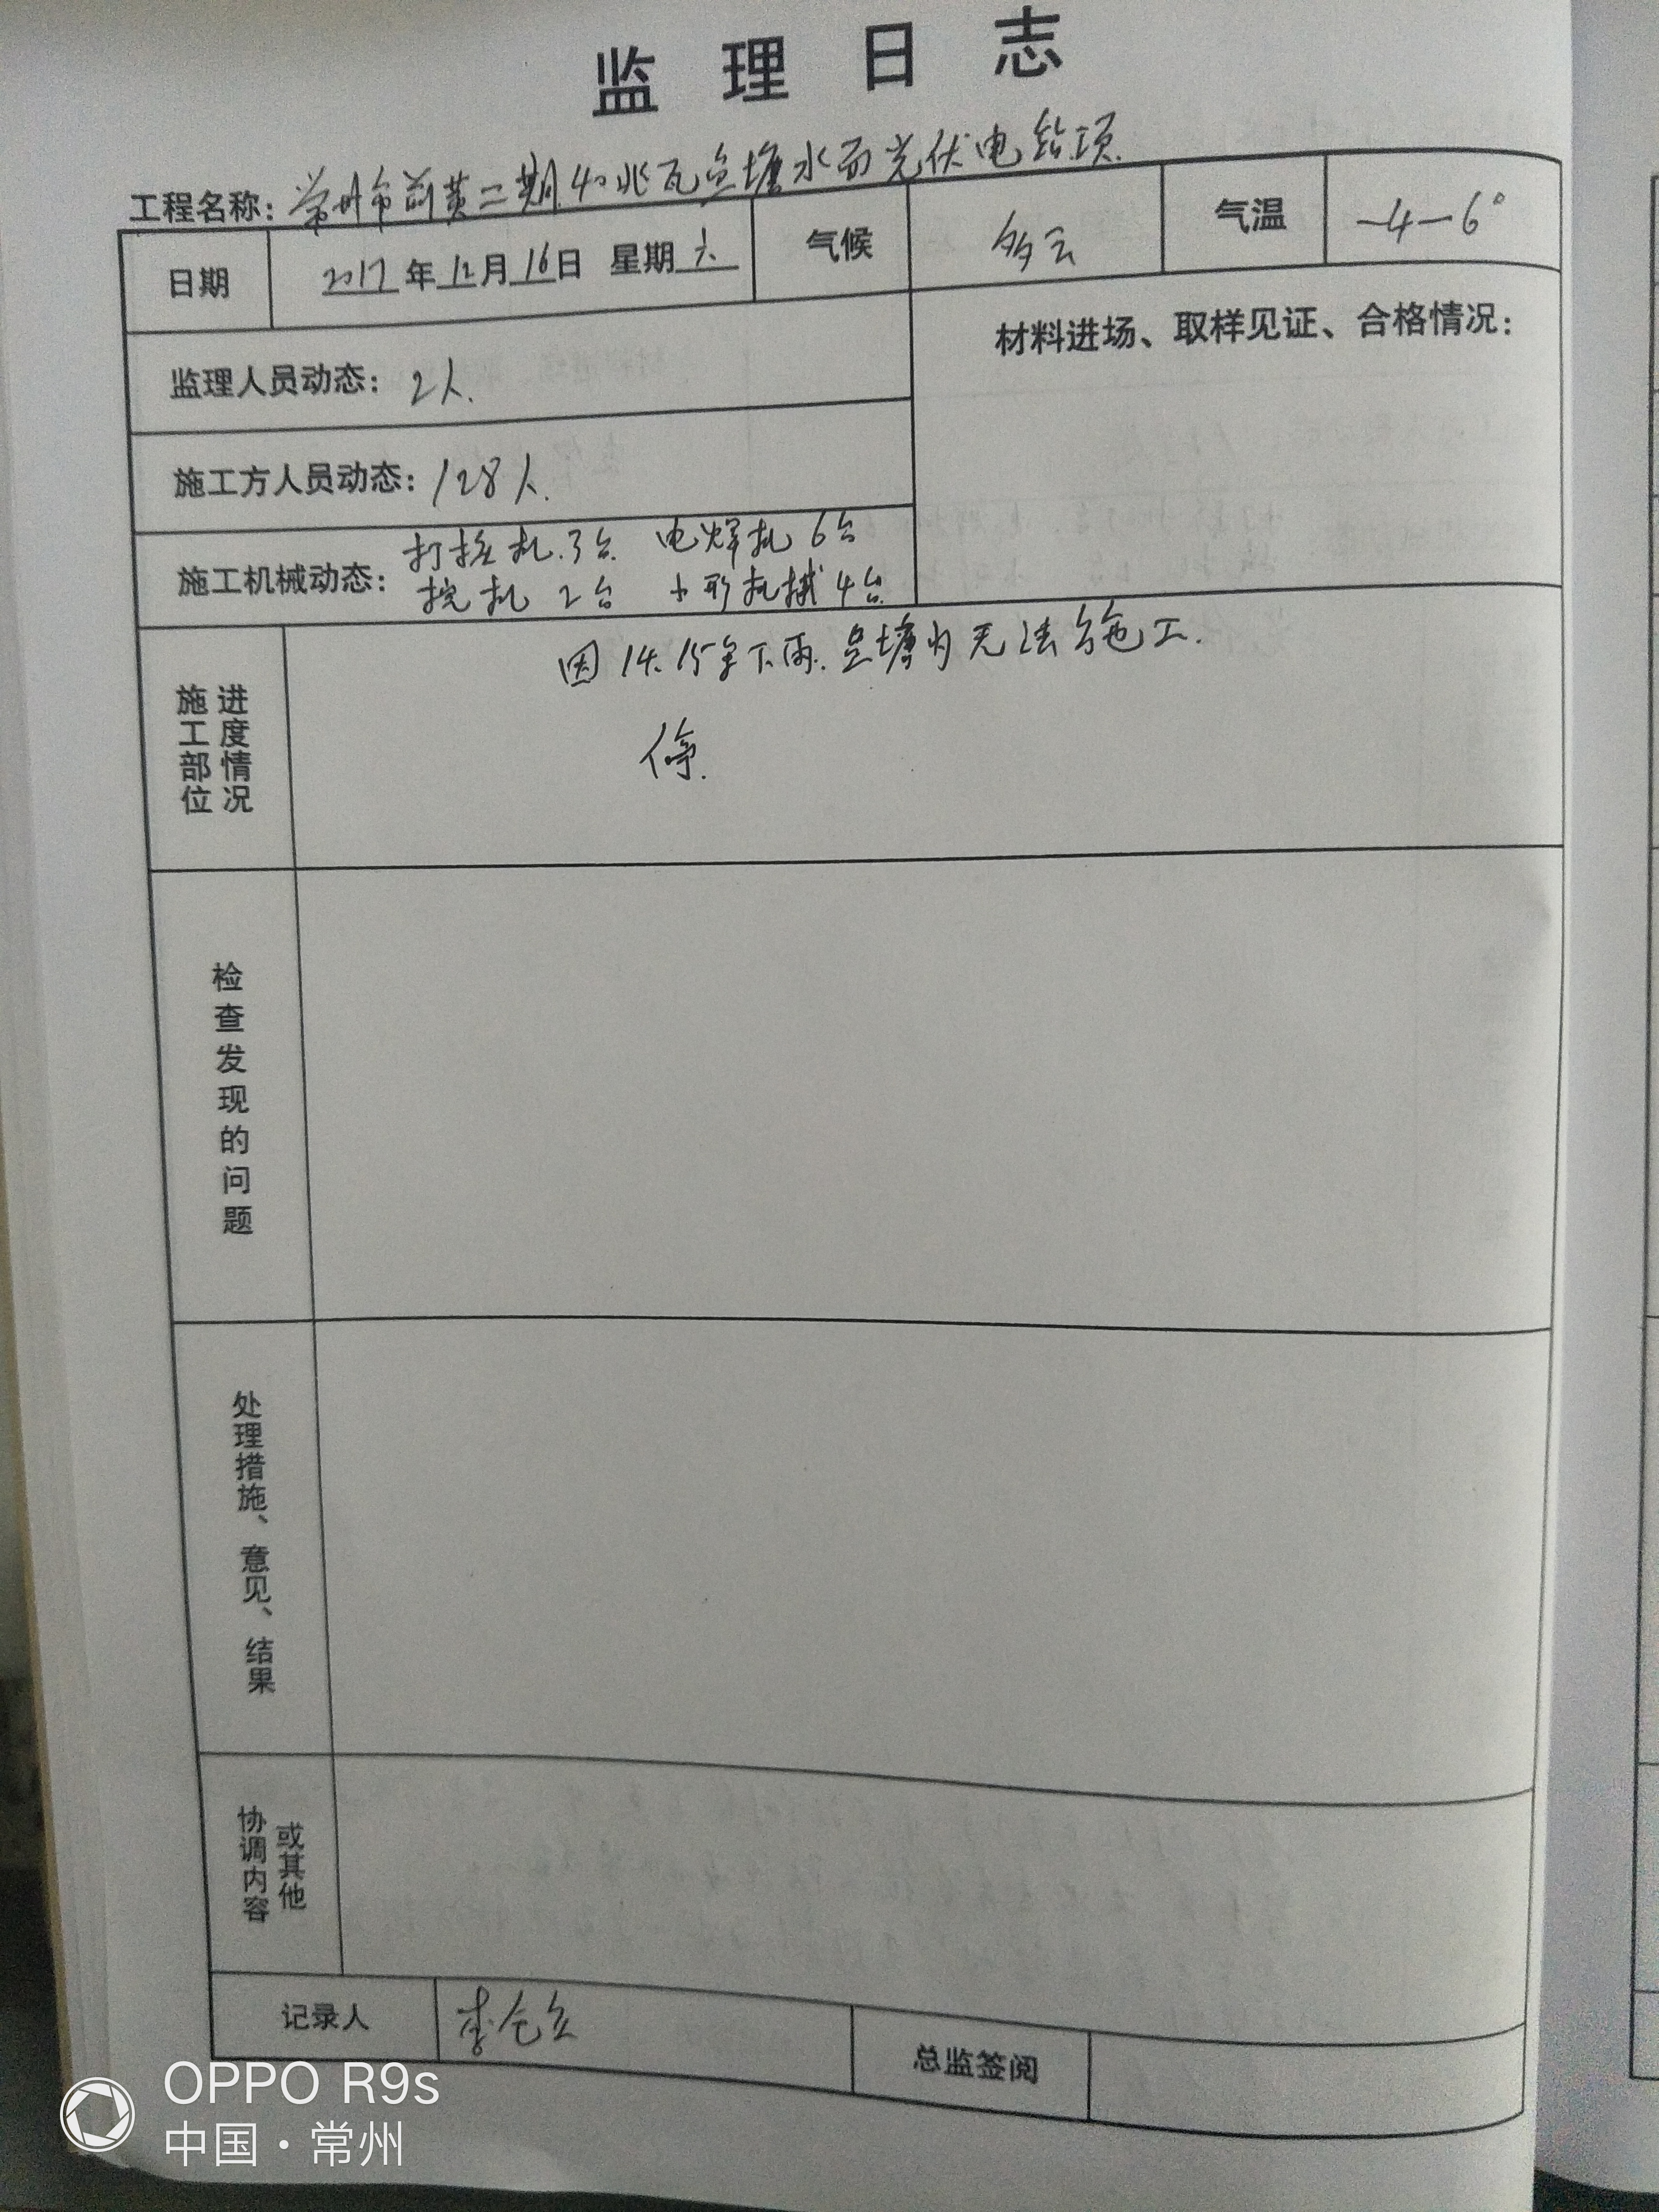 监理日志
工程名称：常州市前黄二期40兆瓦鱼塘水面光伏电站项
日期 2017年12月16日 星期六 气候 多云 气温 -4-6°
监理人员动态：2人. 材料进场、取样见证、合格情况：
施工方人员动态：128人.
施工机械动态：打桩机.3台 电焊机6台
挖机 2台 小形机械4台
施工部位 进度情况
因14.15号下雨.鱼塘内无法施工.
停.
检查发现的问题
处理措施、意见、结果
协调内容 或其他
记录人 李 总监签阅
OPPO R9s
中国·常州